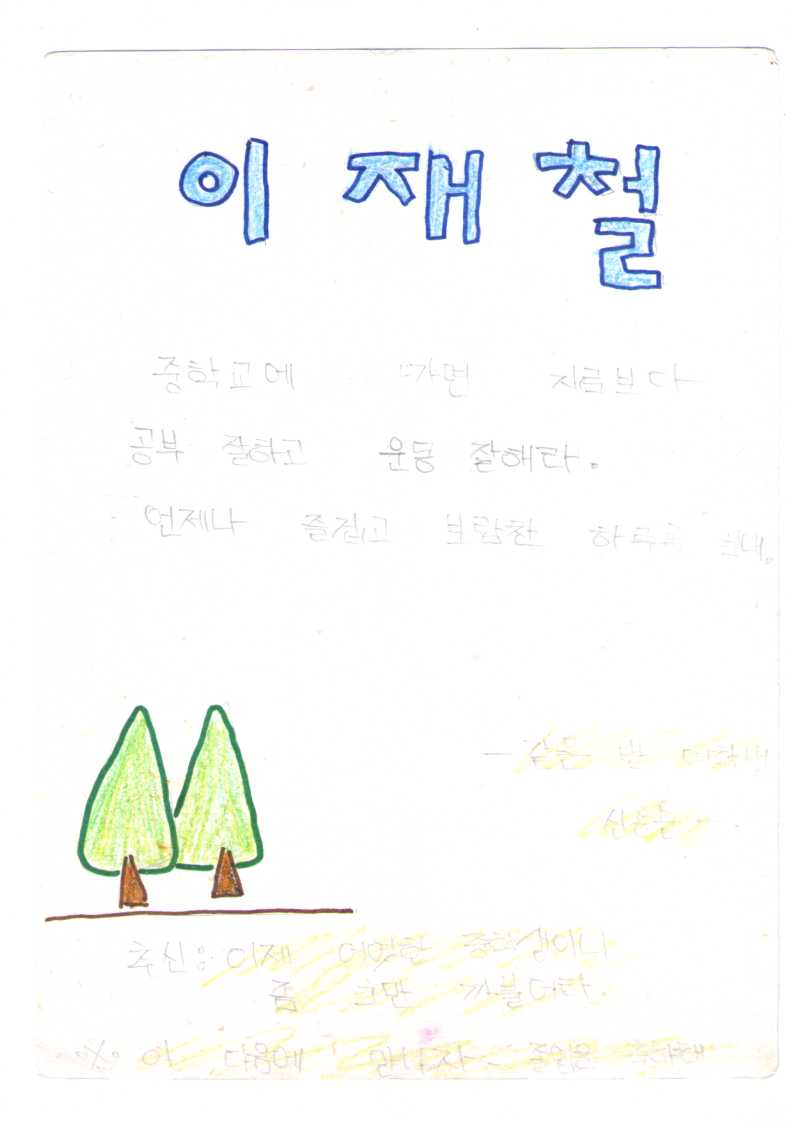 이재철
중학교에 가면 지금보다
공부 잘하고 운동 잘해라.
언제나 즐겁고 보람찬 하루
- 같은 반
추신: 이제 어엿한 중학생이니
좀 그만 까불어라.
이 다음에 만나자 졸업은 축하해